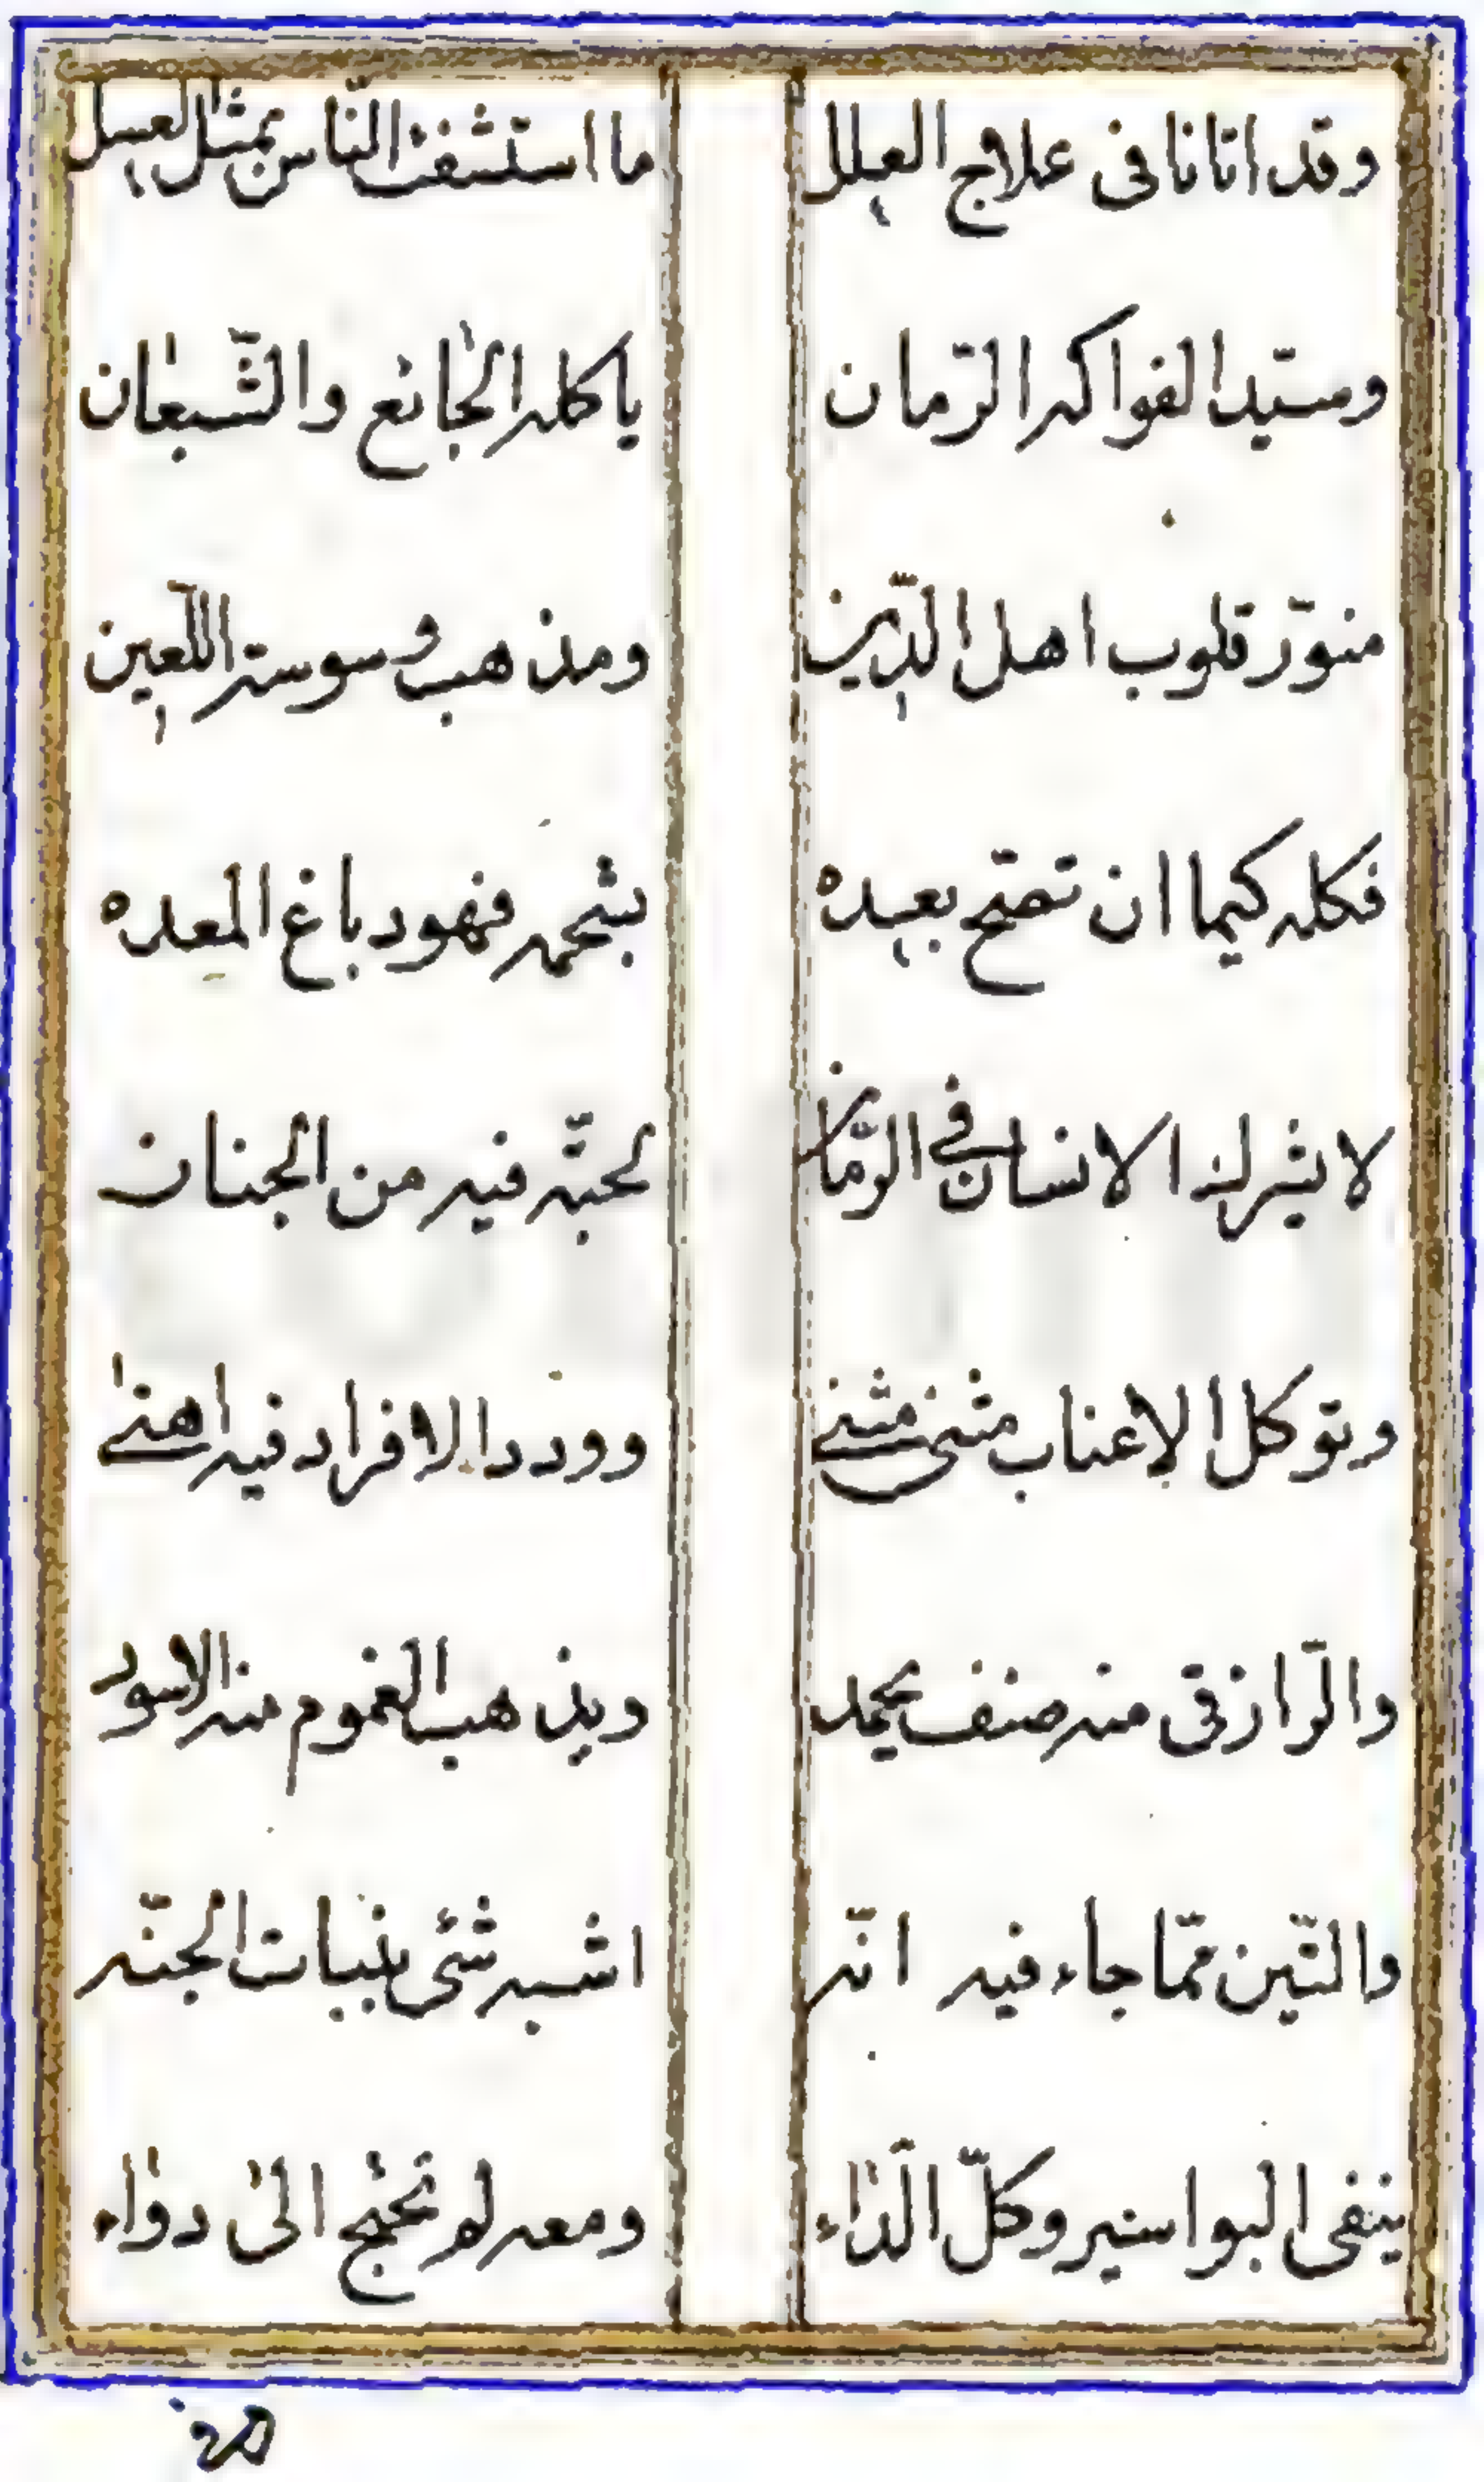 وقد اتانا فى علاج العلل ما استشفت النّاس بمثل العسل
وسيّد الفواكه الرّمان ياكله الجائع والشّبعان
منوّر قلوب اهل الدّين ومذهب وسوسة اللّعين
فكله كيما ان تصحّ بعده بشحمه فهو دباغ المعده
لا يشرك الانسان فى الرّمان لحبّه فيه من الجنان
وتوكل الاعناب مثنى مثنى وورد الافراد فيه اهنى
والرّازقى منه صنف يحمد ويذهب الغموم منه الاسود
والتّين ممّا جاء فيه انّه اشبه شئ بنبات الجنّه
ينفى البواسير وكلّ الدّاء ومعه لم تحتج الى دواء